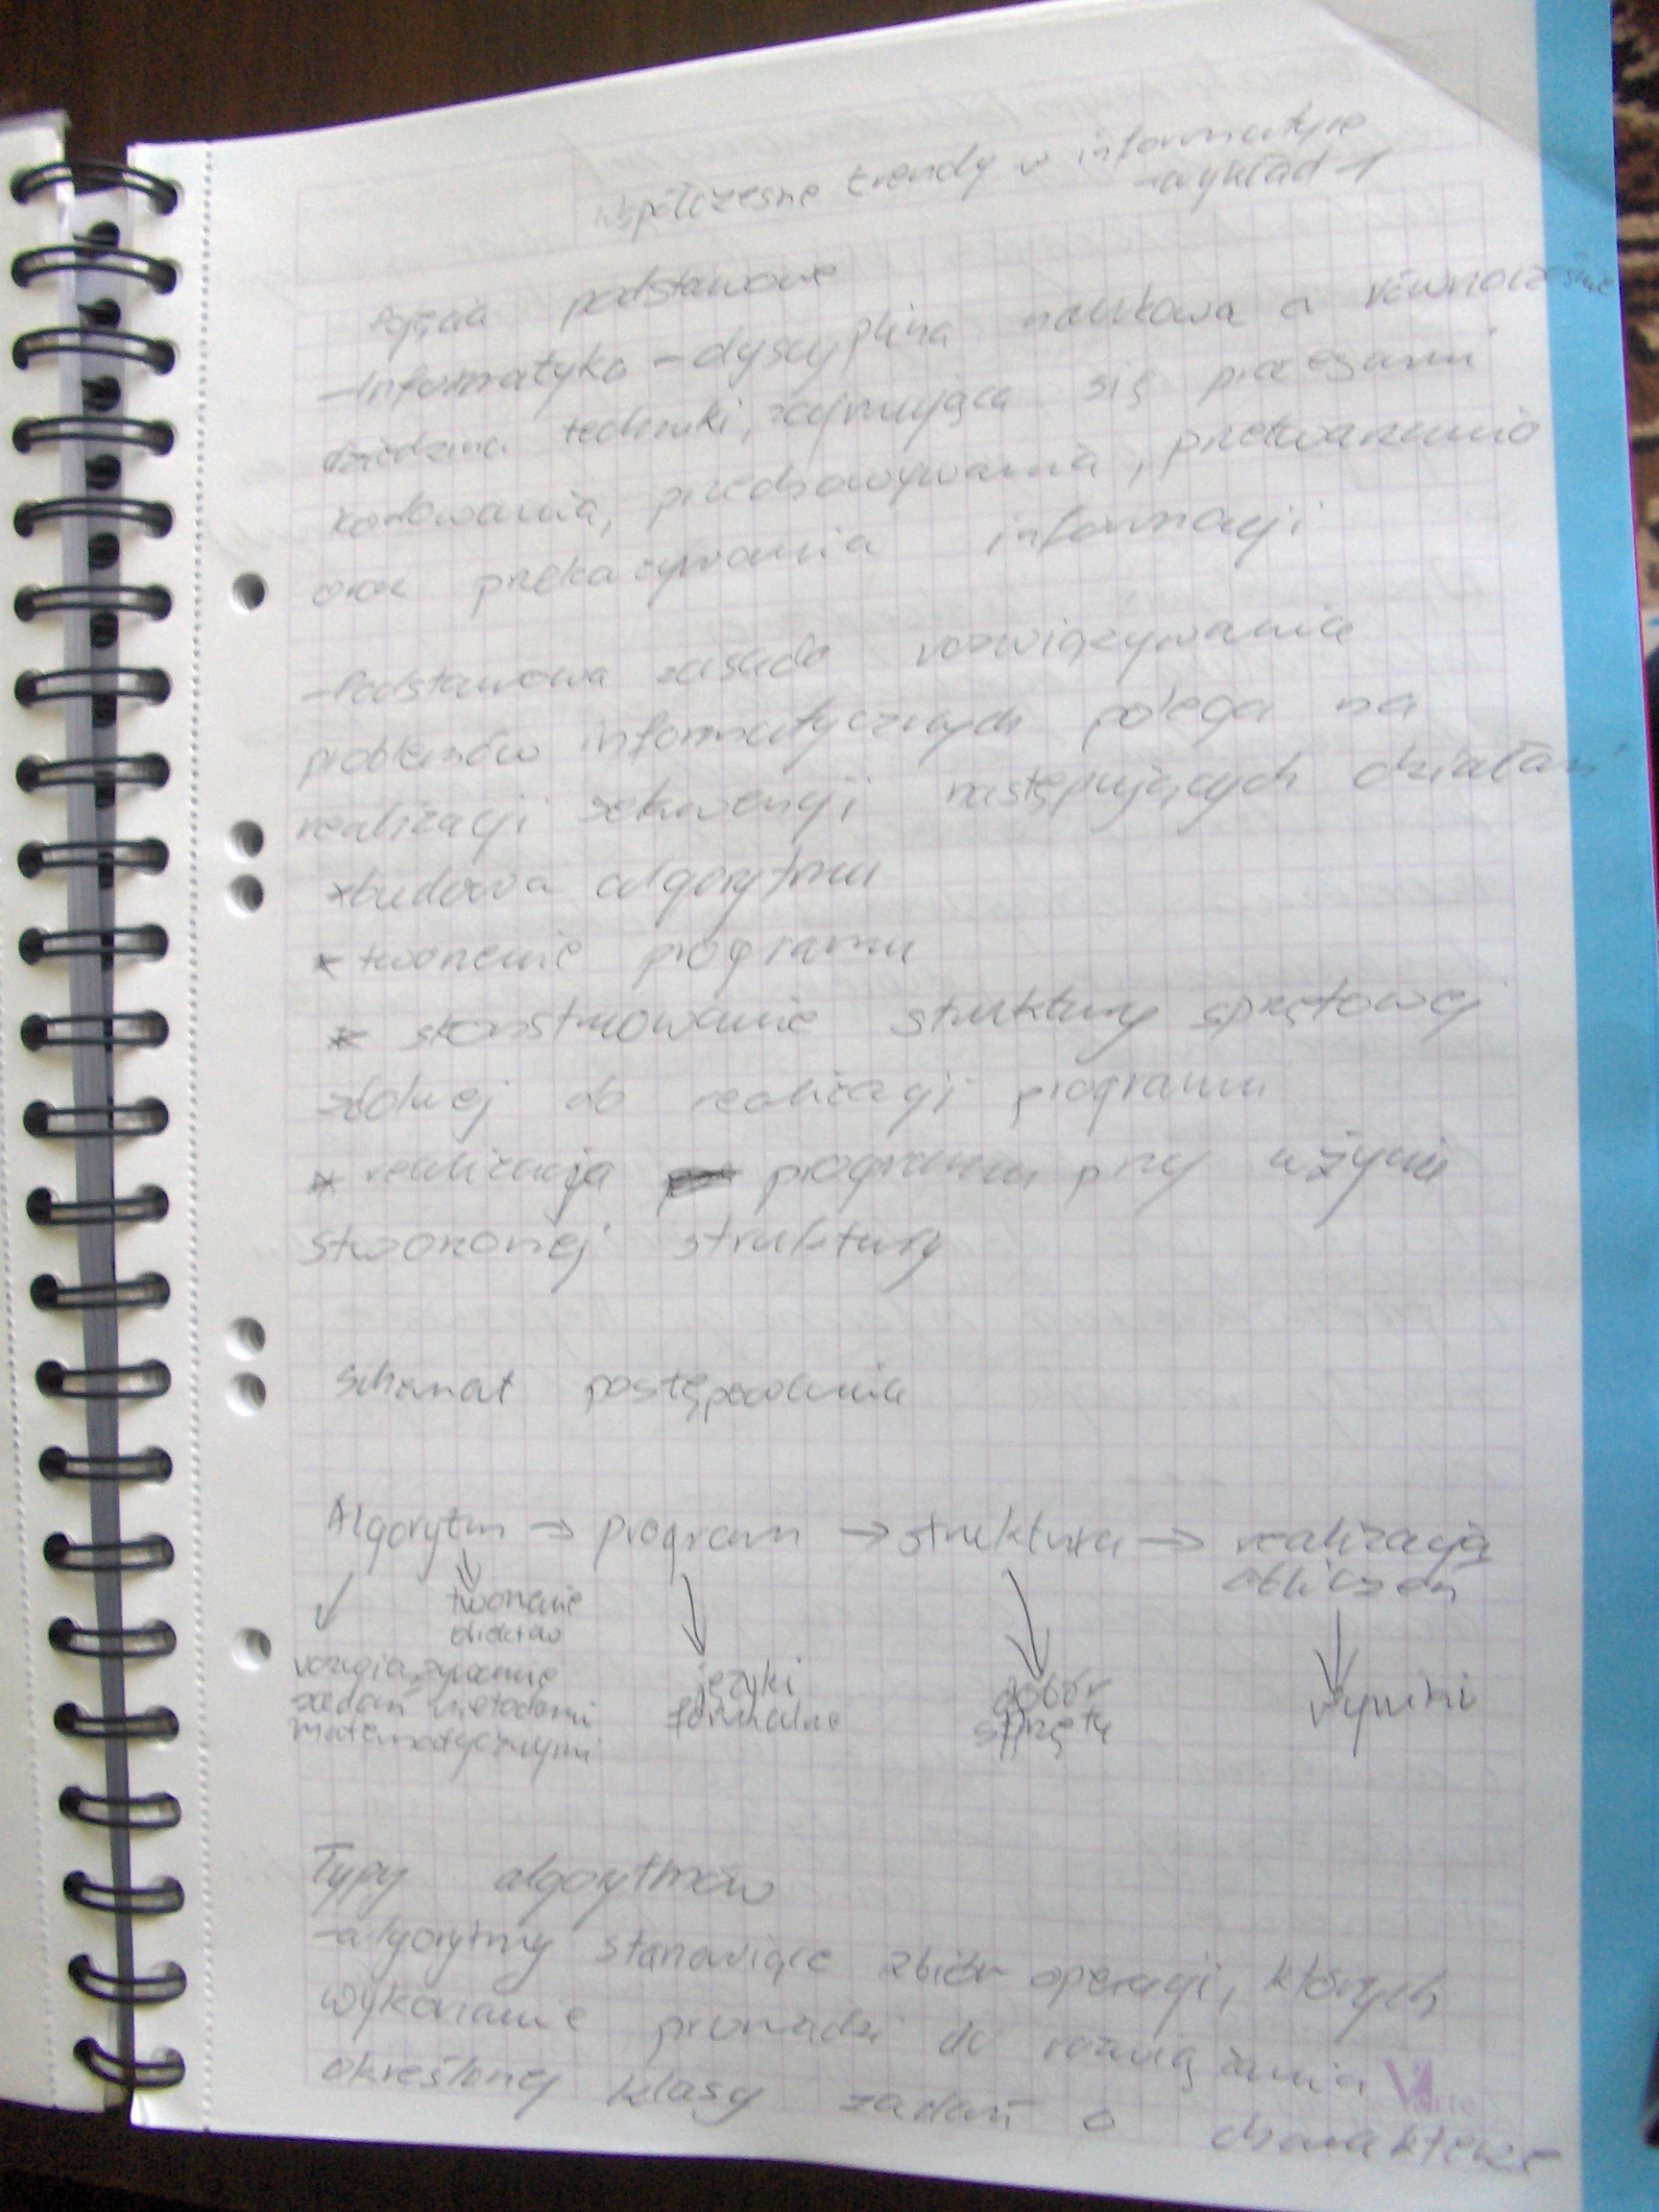 Współczesne trendy w informatyce
-wykład 1
Pojęcia podstawowe
-Informatyka - dyscyplina naukowa a równocześnie
dziedzina techniki, zajmująca się procesami
kodowania, przechowywania, przetwarzania
oraz przekazywania informacji
-Podstawowa zasada rozwiązywania
problemów informatycznych polega na
realizacji sekwencji następujących działań
*budowa algorytmu
* tworzenie programu
* skonstruowanie struktury sprzętowej
zdolnej do realizacji programu
* realizacja programu przy użyciu
stworzonej struktury
schemat postępowania
Algorytm → program → struktura → realizacja
obliczeń
tworzenie
rozwiązywanie
zadań metodami
matematycznymi
języki
formalne
dobór
sprzętu
wyniki
Typy algorytmów
-algorytmy stanowiące zbiór operacji, których
wykonanie prowadzi do rozwiązania
określonej klasy zadań o charakterze